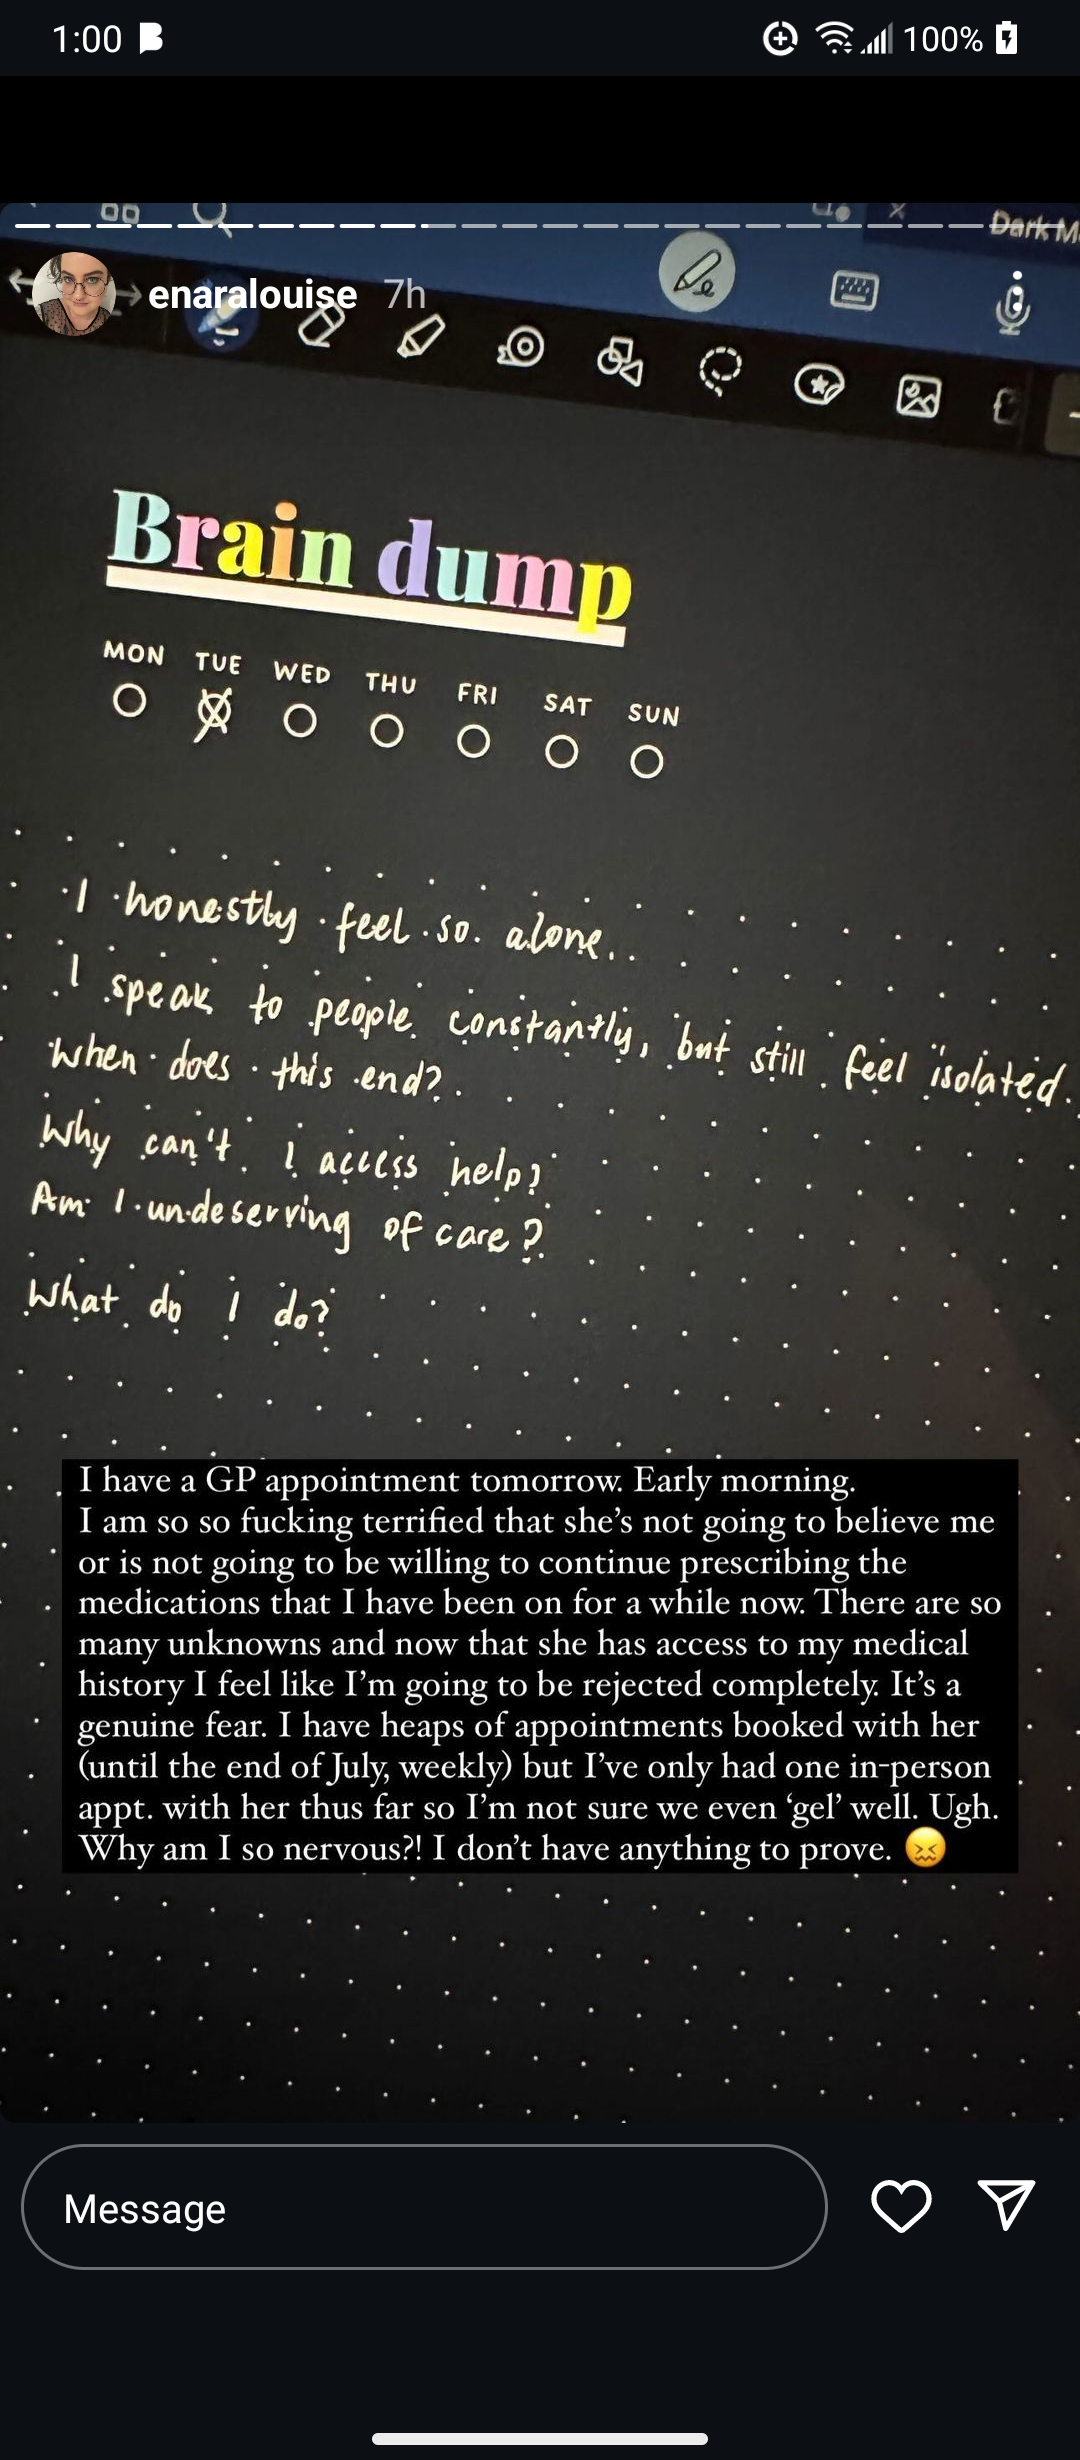 1:00
100%
Dark M
enaralouise 7h
Brain dump
MON TUE WED THU FRI SAT SUN
I honestly feel so alone..
I speak to people constantly, but still feel isolated.
When does this end?
Why can't I access help?
Am I undeserving of care?
What do I do?
I have a GP appointment tomorrow. Early morning.
I am so so fucking terrified that she's not going to believe me
or is not going to be willing to continue prescribing the
medications that I have been on for a while now. There are so
many unknowns and now that she has access to my medical
history I feel like I'm going to be rejected completely. It's a
genuine fear. I have heaps of appointments booked with her
(until the end of July, weekly) but I've only had one in-person
appt. with her thus far so I'm not sure we even ‘gel’ well. Ugh.
Why am I so nervous?! I don't have anything to prove. 😖
Message